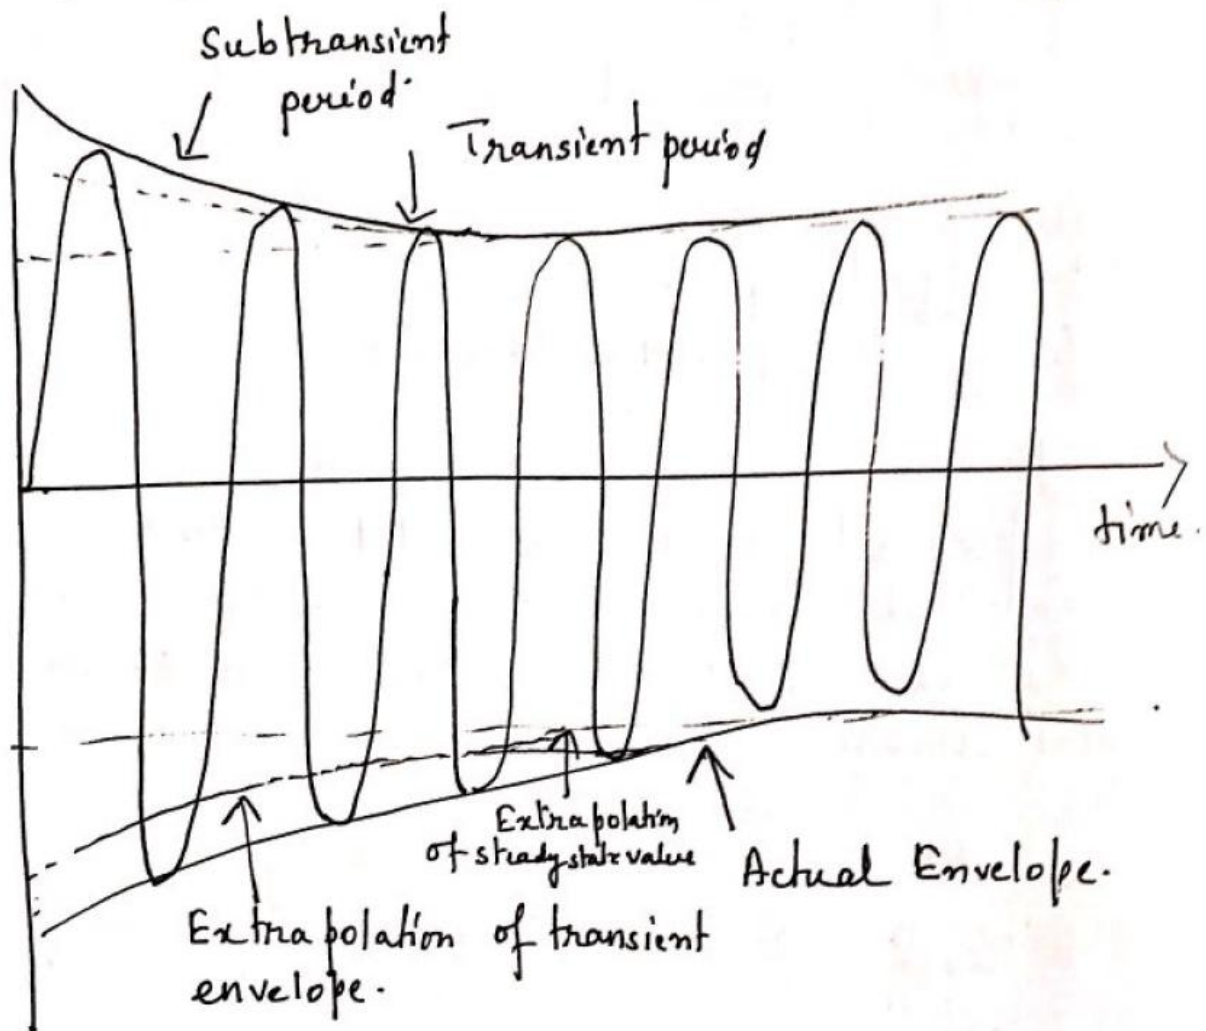 Subtransient
period.
Transient period
time.
Extrapolation
of steady state value
Actual Envelope.
Extrapolation of transient
envelope.